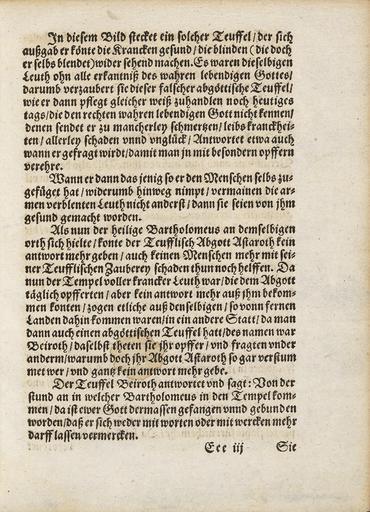 In diesem Bild stecket ein solcher Teuffel / der sich
außgab er könte die Krancken gesund / die blinden (die doch
er selbs blendet) wider sehend machen. Es waren dieselbigen
Leuth ohn alle erkantniß des wahren lebendigen Gottes /
darumb verzaubert sie dieser falscher abgöttische Teuffel /
wie er dann pflegt gleicher weiß zuhandlen noch heutiges
tags / die den rechten wahren lebendigen Gott nicht kennen /
denen sendet er zu mancherley schmertzen / leibs kranckhei-
ten / allerley schaden vnnd vnglück / Antwortet etwa auch
wann er gefragt wirdt / damit man jn mit besondern opffern
verehre.
Wann er dann das jenig so er den Menschen selbs zu-
gefüget hat / widerumb hinweg nimpt / vermainen die ar-
men verblenten Leuth nicht anderst / dann sie seien von jhm
gesund gemacht worden.
Als nun der heilige Bartholomeus an demselbigen
orth sich hielte / konte der Teufflisch Abgott Astaroth kein
antwort mehr geben / auch keinen Menschen mehr mit sei-
ner Teufflischen Zauberey schaden thun noch helffen. Da
nun der Tempel voller krancker Leuth war / die dem Abgott
täglich opfferten / aber kein antwort mehr auß jhm bekom-
men konten / zogen etliche auß denselbigen / so vonn fernen
Landen dahin kommen waren / in ein andere Statt / da man
dann auch einen abgöttischen Teuffel hatt / des namen war
Beiroth / daselbst theten sie jhr opffer / vnd fragten vnder
anderm / warumb doch jhr Abgott Astaroth so gar verstum
met wer / vnd gantz kein antwort mehr gebe.
Der Teuffel Beiroth antwortet vnd sagt: Von der
stund an in welcher Bartholomeus in den Tempel kom-
men / da ist ewer Gott dermassen gefangen vnnd gebunden
worden / daß er sich weder mit worten oder mit wercken mehr
darff lassen vermercken.
Eee iij Sie